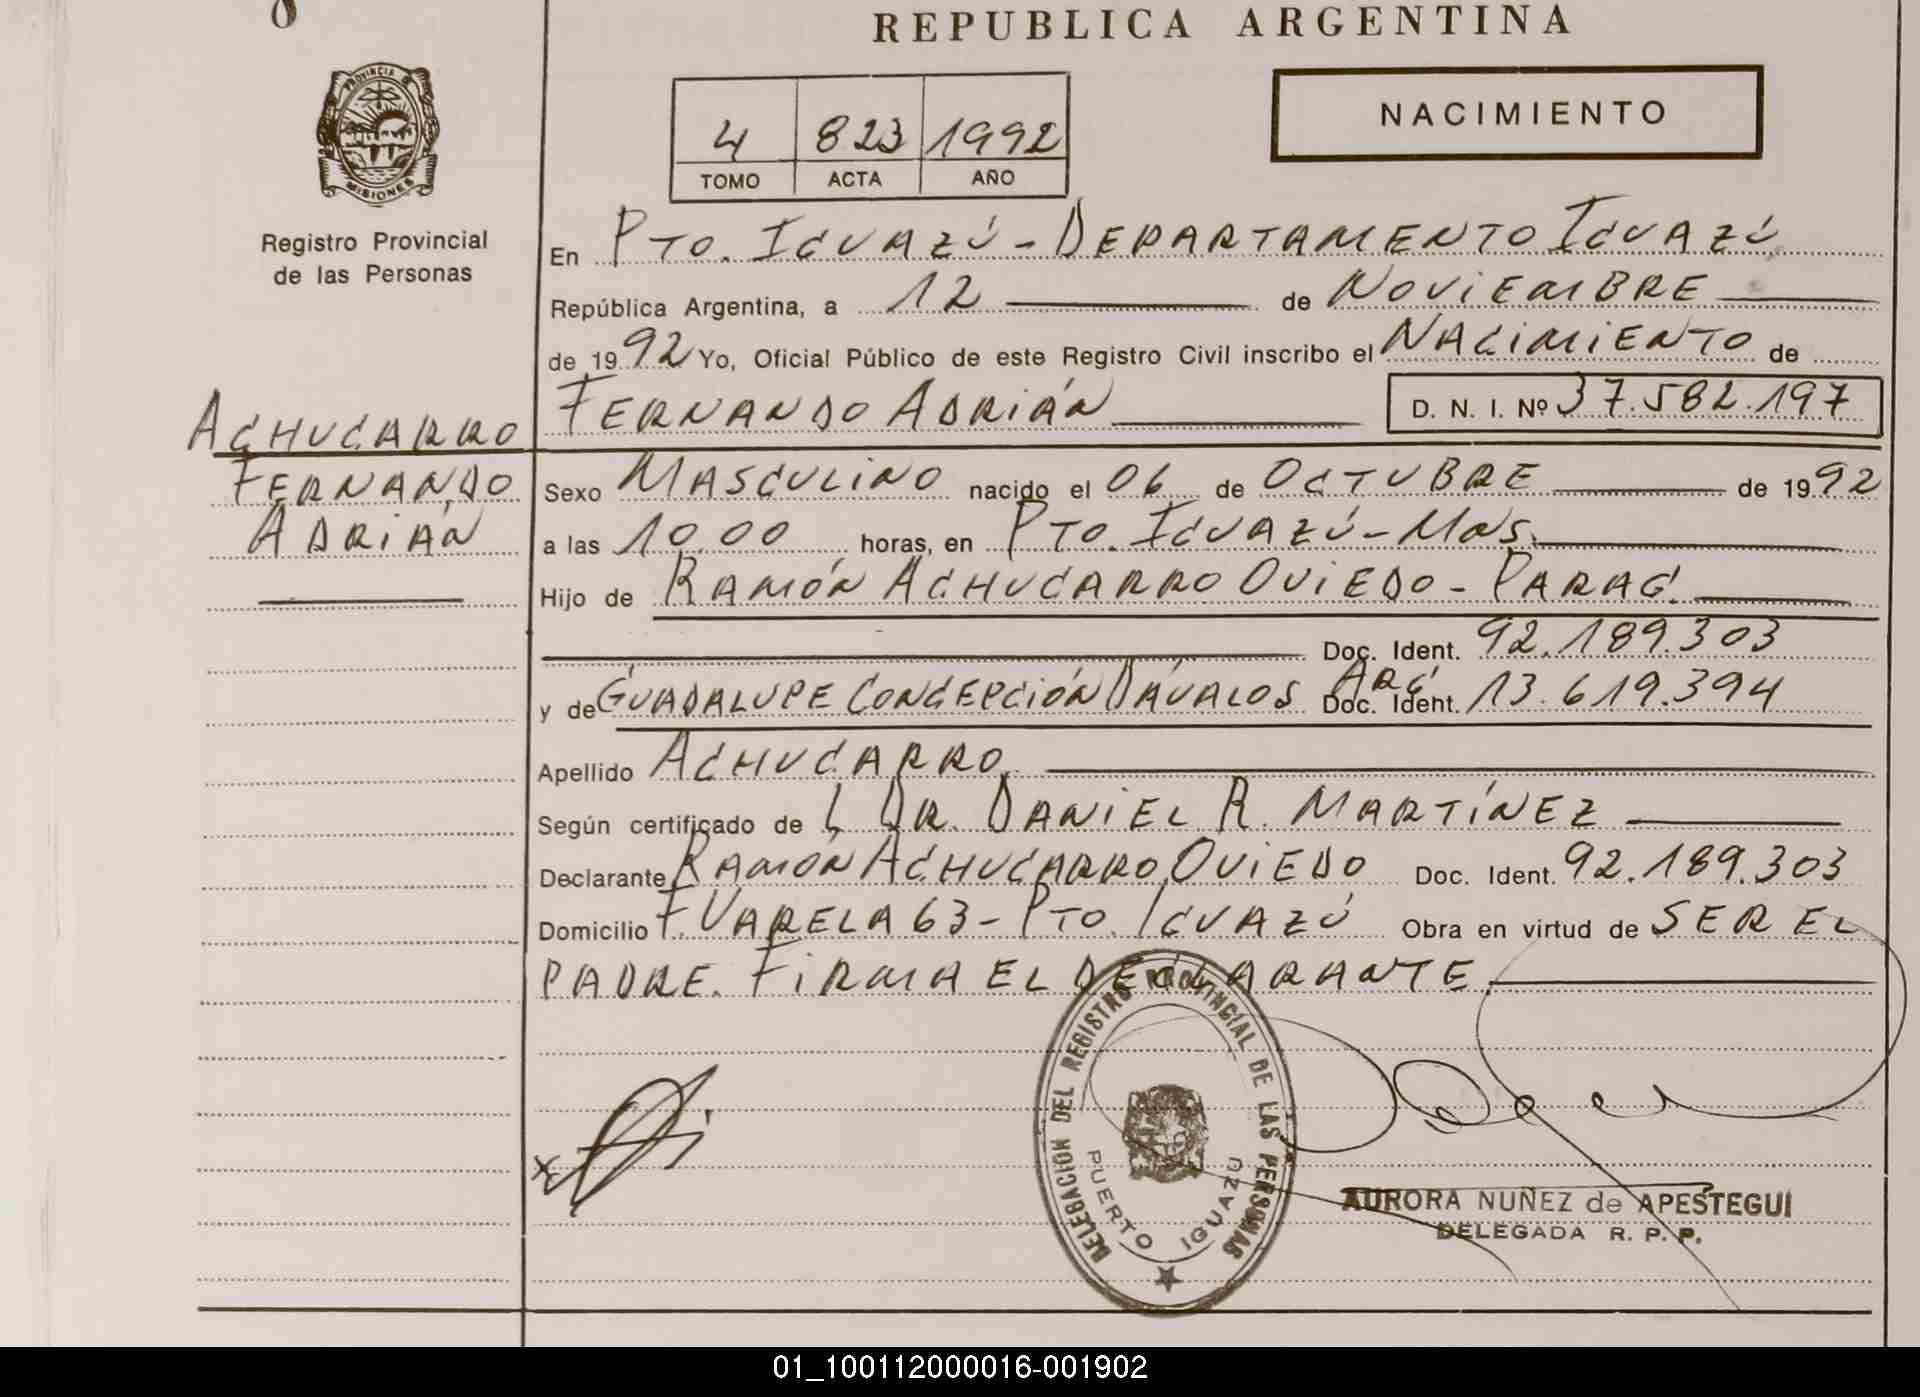 REPUBLICA ARGENTINA
NACIMIENTO
4 823 1992
TOMO ACTA AÑO
PROVINCIA DE
MISIONES
Registro Provincial
de las Personas
En PTO. IGUAZÚ - DEPARTAMENTO IGUAZÚ
República Argentina, a 12 de NOVIEMBRE
de 1992 Yo, Oficial Público de este Registro Civil inscribo el NACIMIENTO de
FERNANDO ADRIÁN D. N. I. Nº 37.582.197
ACHUCARRO
FERNANDO
ADRIÁN
Sexo MASCULINO nacido el 06 de OCTUBRE de 1992
a las 10.00 horas, en PTO. IGUAZÚ - Mns.
Hijo de RAMÓN ACHUCARRO OVIEDO - PARAG.
Doc. Ident. 92.189.303
y de GUADALUPE CONCEPCIÓN DÁVALOS ARG. Doc. Ident. 13.619.394
Apellido ACHUCARRO
Según certificado de DR. DANIEL R. MARTÍNEZ
Declarante RAMÓN ACHUCARRO OVIEDO Doc. Ident. 92.189.303
Domicilio F. VARELA 63 - PTO. IGUAZÚ Obra en virtud de SER EL
PADRE. FIRMA EL DECLARANTE
DELEGACION DEL REGISTRO PROVINCIAL DE LAS PERSONAS
PUERTO IGUAZU
AURORA NUÑEZ de APESTEGUI
DELEGADA R. P. P.
01_100112000016-001902